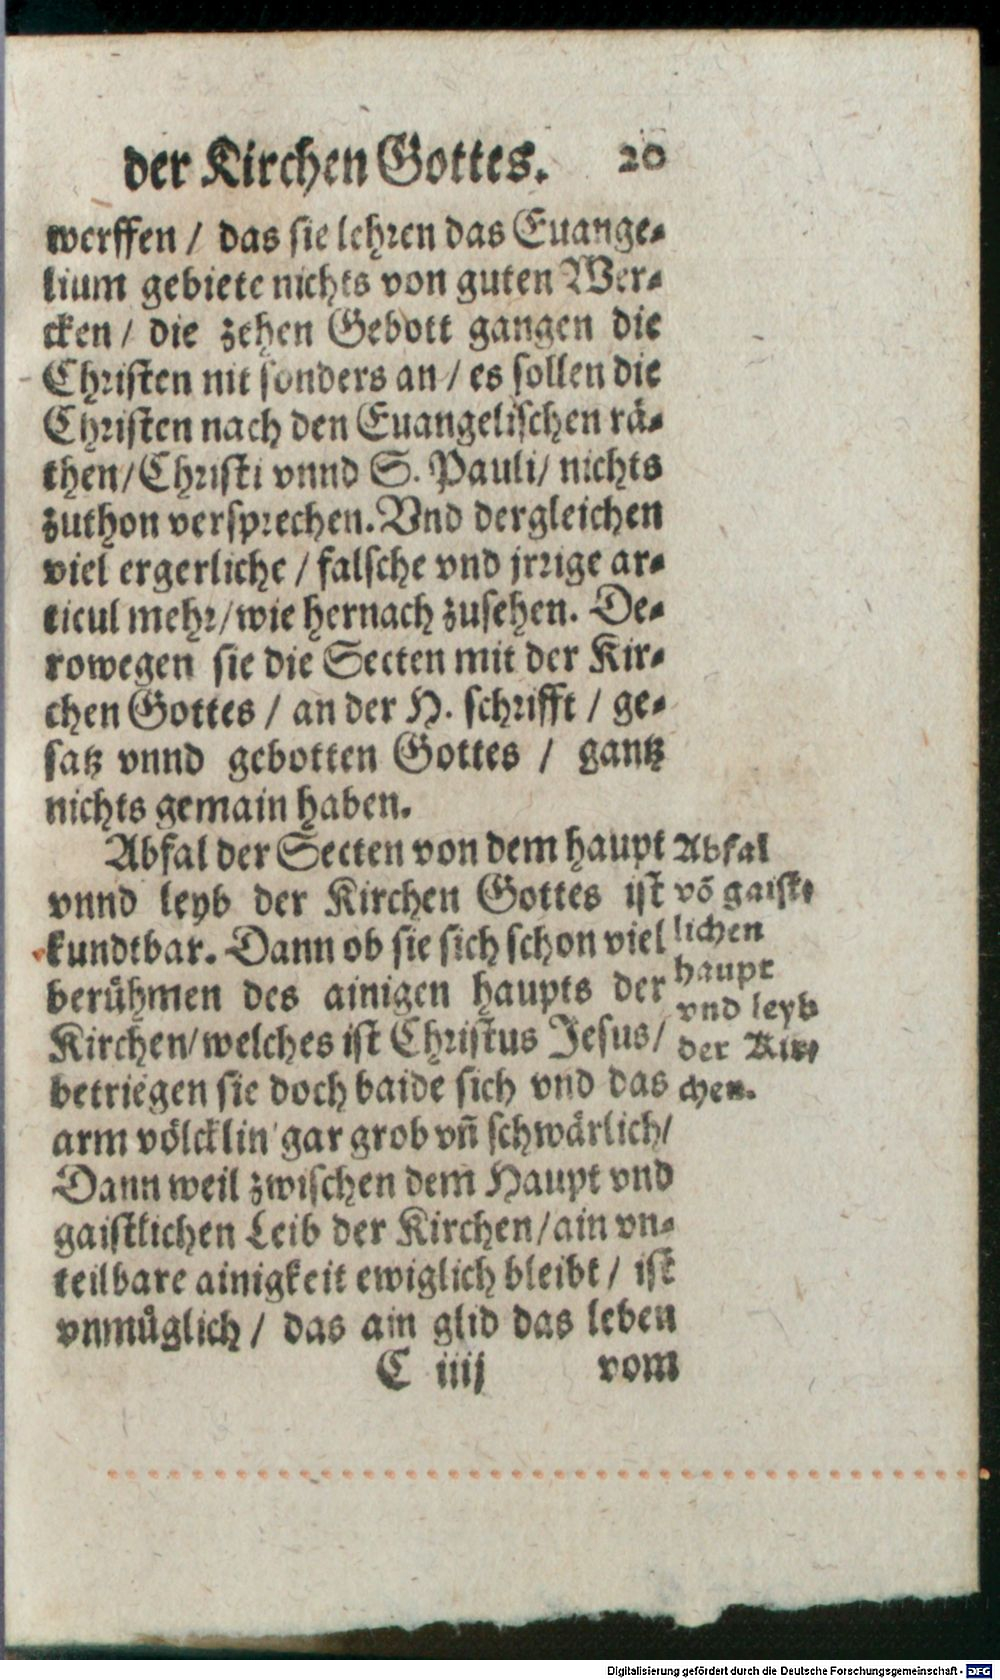 der Kirchen Gottes. 20
werffen / das sie lehren das Euange-
lium gebiete nichts von guten Wer-
cken / die zehen Gebott gangen die
Christen nit sonders an / es sollen die
Christen nach den Euangelischen rä-
then / Christi vnnd S. Pauli / nichts
zuthon versprechen. Vnd dergleichen
viel ergerliche / falsche vnd jrrige ar-
ticul mehr / wie hernach zusehen. De-
rowegen sie die Secten mit der Kir-
chen Gottes / an der H. schrifft / ge-
satz vnnd gebotten Gottes / gantz
nichts gemain haben.
Abfal der Secten von dem haupt
vnnd leyb der Kirchen Gottes ist
kundtbar. Dann ob sie sich schon viel
berühmen des ainigen haupts der
Kirchen / welches ist Christus Jesus /
betriegen sie doch baide sich vnd das
arm völcklin gar grob vñ schwärlich /
Dann weil zwischen dem Haupt vnd
gaistlichen Leib der Kirchen / ain vn-
teilbare ainigkeit ewiglich bleibt / ist
vnmüglich / das ain glid das leben
Abfal
võ gaist-
lichen
haupt
vnd leyb
der Kir-
chen.
C iiij vom
Digitalisierung gefördert durch die Deutsche Forschungsgemeinschaft - DFG